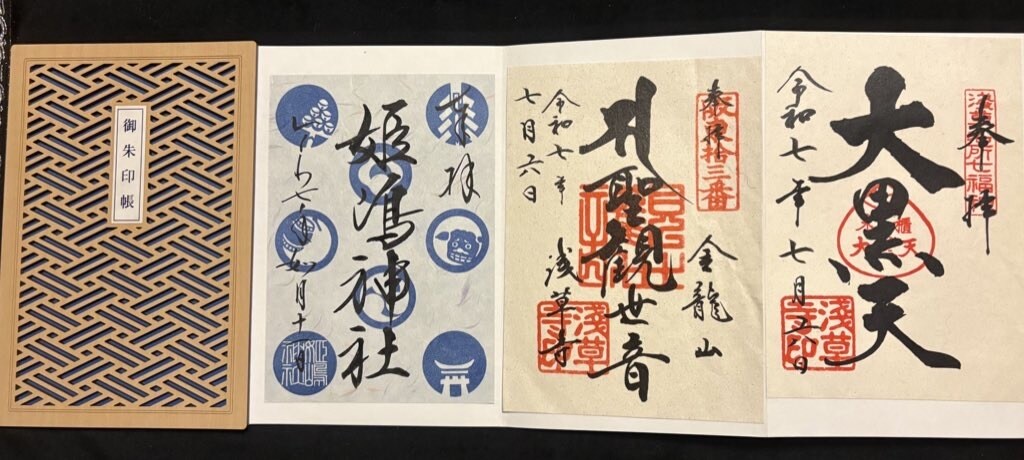 御朱印帳
奉拝
姫嶋神社
七年如月十一日
奉拝
坂東拾三番
聖観世音
金龍山
浅草寺
令和七年
七月六日
浅草寺印
奉拝
浅草名所七福神
大黒天
令和七年七月六日
浅草寺印